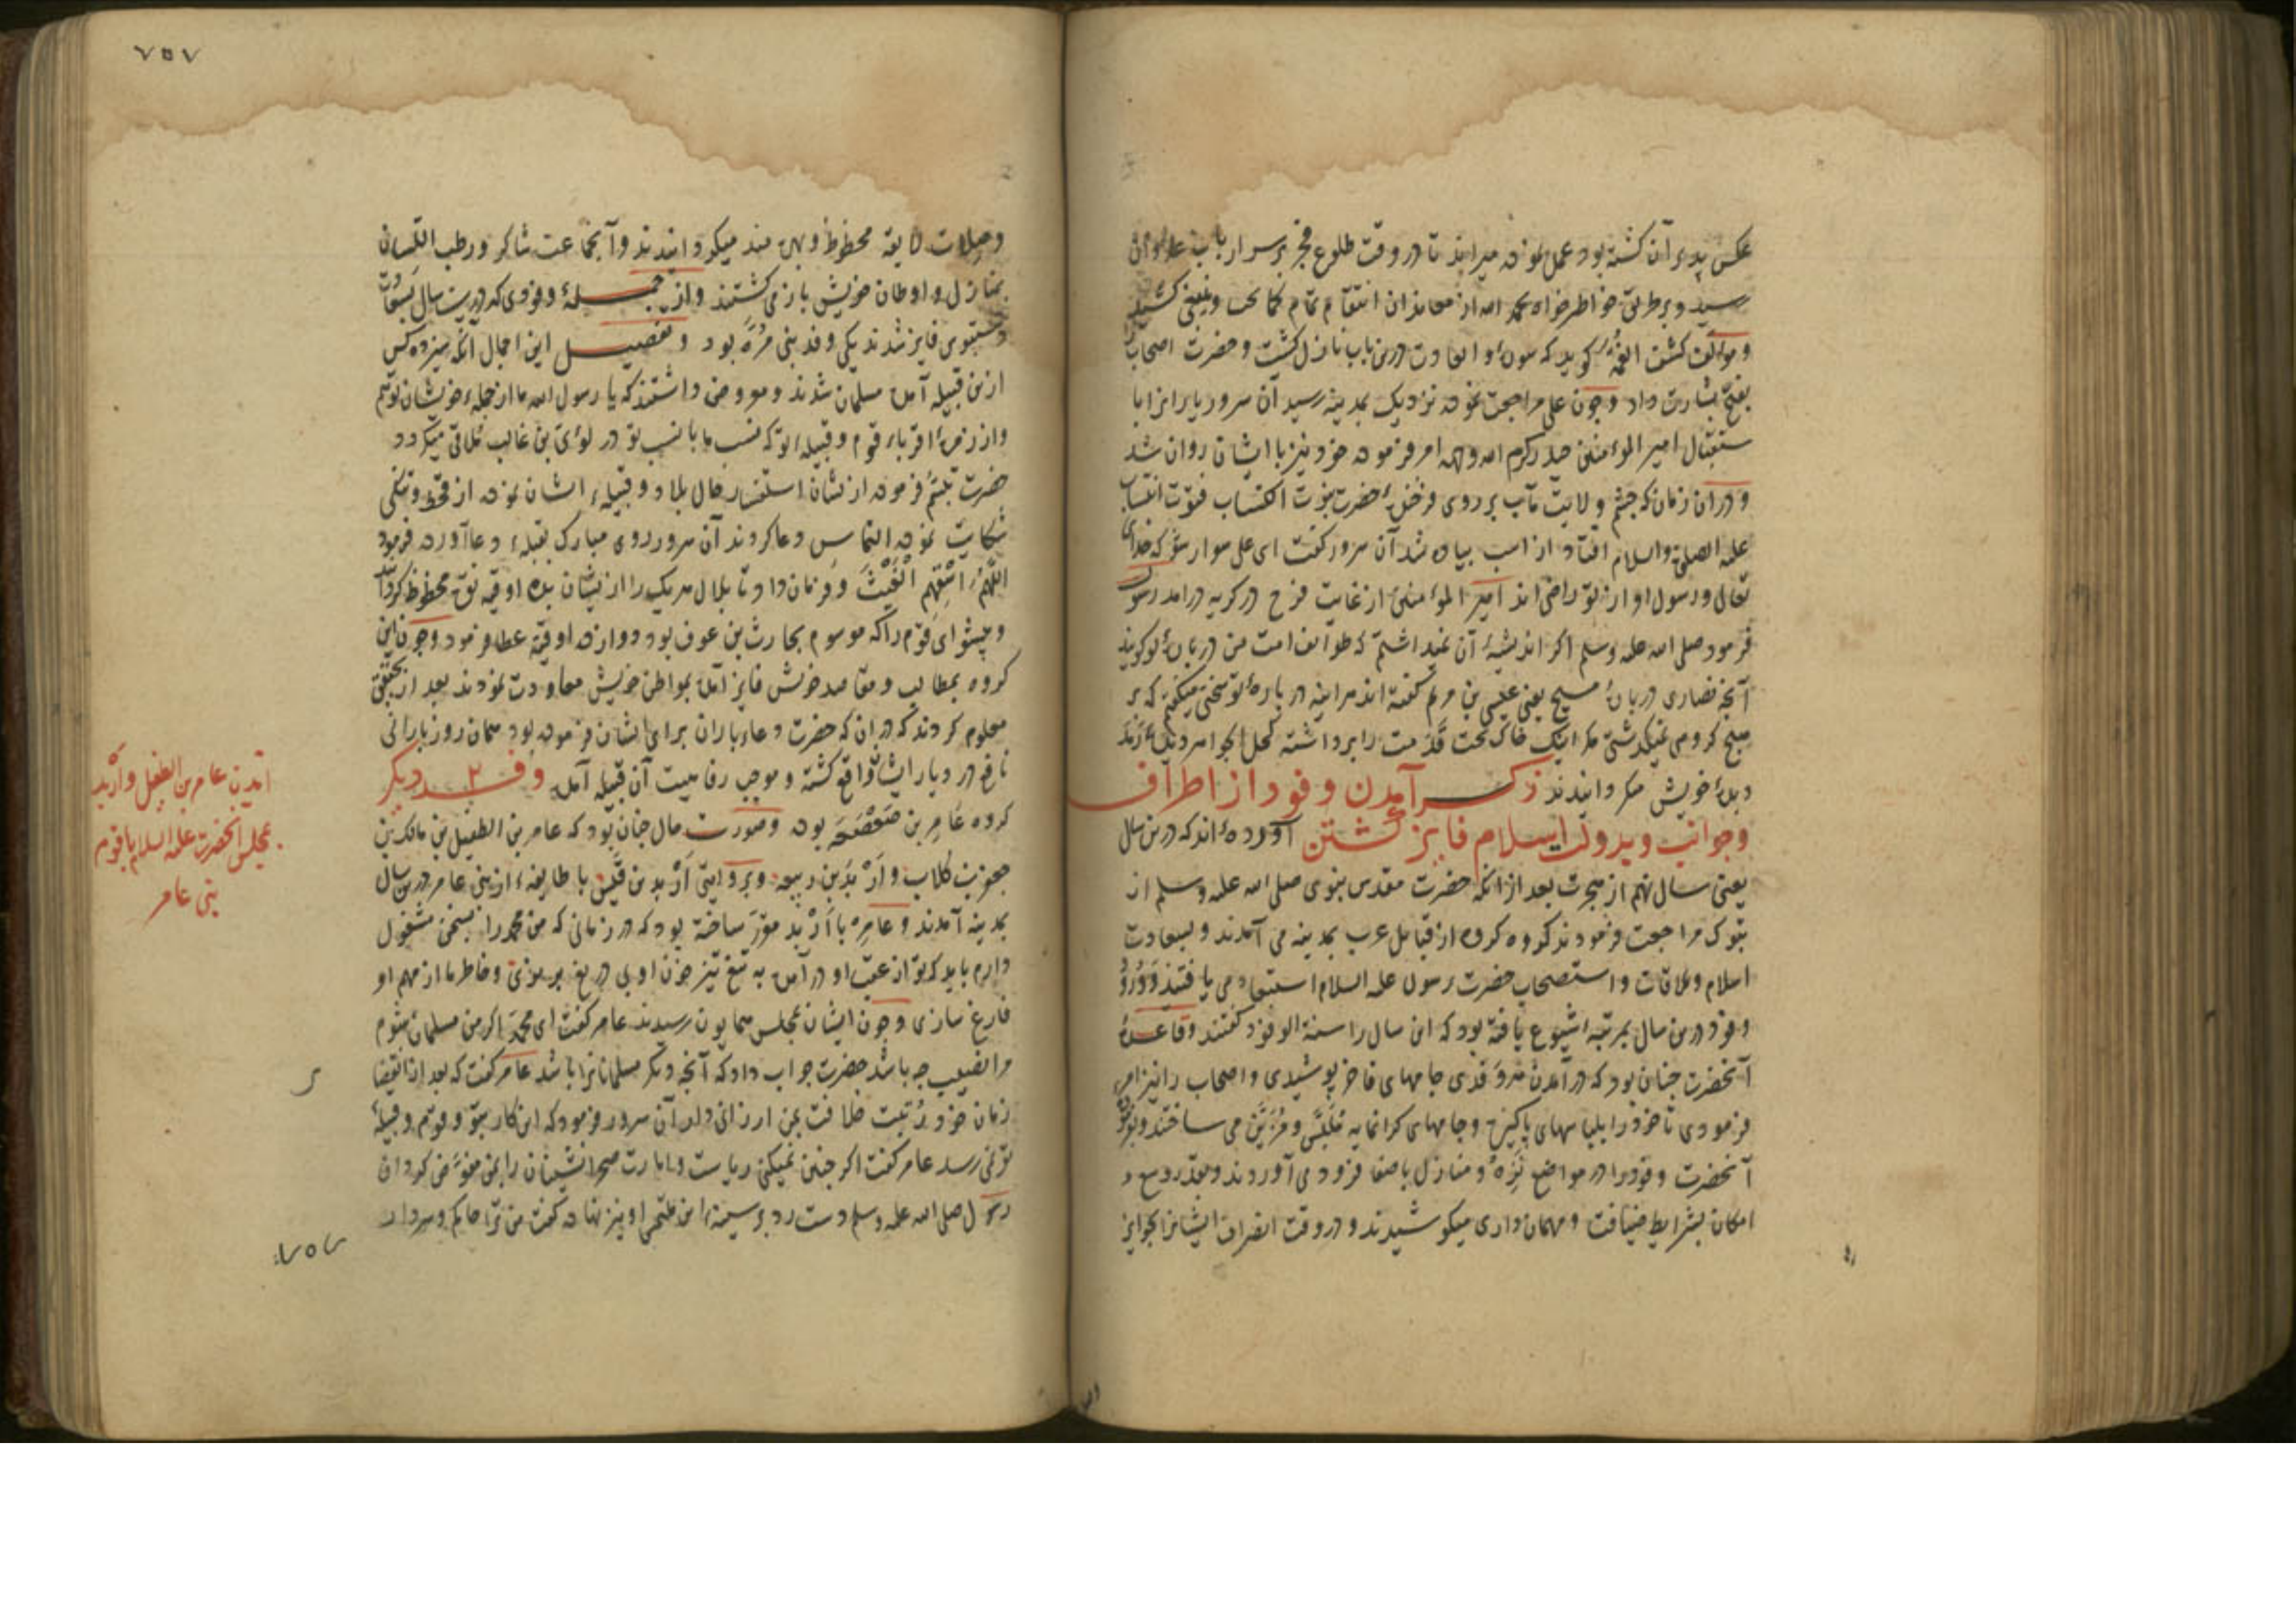 عکس پدری آن کشته بود عمل نموده میراند تا در وقت طلوع فجر بر سر ارباب
رسید و بر طریق خاطر خواه بحمد الله از معاندان انتقام تمام
و مؤلف کشف الغمه گوید که سورهٔ و العادیات درین باب نازل گشت و حضرت اصحاب را
بفتح بشارت داد و چون علی مراجعت نموده نزدیک بمدینه رسید آن سرور یارانرا با
ستقبال امیر المؤمنین حیدر کرم الله وجهه امر فرموده خود نیز با ایشان روان شد
و در آن زمان که چشم ولایت مآب بر روی فرخندهٔ حضرت نبوت اکتساب فتوت انتساب
علیه الصلوة والسلام افتاد از اسب پیاده شد آن سرور گفت ای علی سوار شو که خدای
تعالی و رسول او از تو راضی اند امیر المؤمنین از غایت فرح در گریه درآمد رسول
فرمود صلی الله علیه وسلم اگر اندیشهٔ آن نمیداشتم که طوایف امت من دربارهٔ تو گویند
آنچه نصاری دربارهٔ مسیح یعنی عیسی بن مریم گفته اند هر آینه در بارهٔ تو سخنی میگفتم که بر
هیچ گروهی نمیگذشتی مگر اینک خاک تحت قدمت را برداشته کحل الجواهر
دیدهٔ خویش میگردانیدند ذکر آمدن وفود از اطراف
وجوانب وبدولت اسلام فایز گشتن آورده اند که درین سال
یعنی سال نهم از هجرت بعد از آنکه حضرت مقدس نبوی صلی الله علیه وسلم از
تبوک مراجعت فرمودند گروه گروه از قبایل عرب بمدینه می آمدند و بسعادت
اسلام و ملاقات و استصحاب حضرت رسول علیه السلام استسعاد می یافتند و ورود
وفود درین سال بمرتبهٔ شیوع یافته بود که این سال را سنة الوفود گفتند و قاعدهٔ
آنحضرت چنان بود که در آمدن هر وفدی جامهای فاخر پوشیدی و اصحاب را نیز امر
فرمودی تا خود را بلباسهای پاکیزه و جامهای گرانمایه ملبس و مزین می ساختند
آنحضرت وفود را در مواضع نزه و منازل باصفا فرود می آوردند و بقدر وسع و
امکان بشرایط ضیافت و مهمان داری میکوشیدند و در وقت انصراف ایشانرا بجوایز
۷۵۷
وصلات لایقه محظوظ و بهره مند میگردانیدند و آنجماعت شاکر و رطب اللسان
بمنازل و اوطان خویش باز می گشتند و از جملهٔ وفودی که درین سال بسعادت
دستبوس فایز شدند یکی وفد بنی مره بود و تفصیل این اجمال آنکه سیزده کس
ازین قبیله آمده مسلمان شدند و معروض داشتند که یا رسول الله ما از جمله خویشان توئیم
و از زمرهٔ اقرباء قوم و قبیله تو که نسب ما با نسب تو در لؤی بن غالب تلاقی میگردد
حضرت تبسم فرموده از نشان استفسار حال بلاد و قبیله ایشان نموده از قحط و تنگی
شکایت نموده التماس دعا کردند آن سرور روی مبارک بقبله دعا آورده فرمود
اللهم اسقهم الغیث و فرمان داد تا بلال هر یک را از ایشان بده اوقیه نقره محظوظ گرداند
و پیشوای قوم را که موسوم بحارث بن عوف بود دوازده اوقیه عطا فرمود و چون این
گروه بمطالب و مقاصد خویش فایز آمده بمواطن خویش معاودت نمودند بعد از تحقیق
معلوم کردند که در آن که حضرت دعاء باران برای ایشان فرموده بود همان روز بارانی
نافع در دیار ایشان واقع گشته و موجب رفاهیت آن قبیله آمد وفد ۲ دیگر
گروه عامر بن صعصعه بوده و صورت حال چنان بود که عامر بن الطفیل بن مالک بن
جعفر بن کلاب و اربد بن ربیعه و بروایتی اربد بن قیس با طایفه از بنی عامر درین سال
بمدینه آمدند و عامر با اربد مقرر ساخته بود که در زمانی که من محمد را بسخن مشغول
دارم باید که تو از عقب او درآمده به تیغ تیز خون او بی دریغ بریزی و خاطر ما از مهم او
فارغ سازی و چون ایشان بمجلس همایون رسیدند عامر گفت ای محمد اگر من مسلمان شوم
مرا نصیب چه باشد حضرت جواب داد که آنچه دیگر مسلمانانرا باشد عامر گفت که بعد از انقضا
زمان خود رتبت خلافت بمن ارزانی دار آن سرور فرمود که این کار بتو و قوم و قبیلهٔ
تو نمی رسد عامر گفت اگر چنین نمیکنی ریاست و امارت صحرانشینان را بمن مفوض گردان
رسول صلی الله علیه وسلم دست رد بر سینهٔ این ملتمس او نیز نهاده گفت من ترا حاکم و سردار
آمدن عامر بن الطفیل و اربد
بمجلس آنحضرت علیه السلام با قوم
بنی عامر
۷۵۷